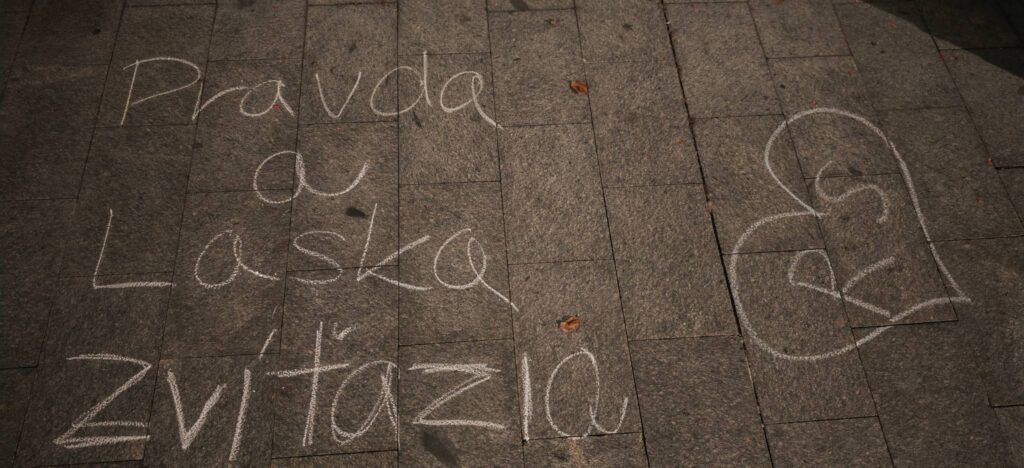 Pravda
a
Laska
zvíťazia